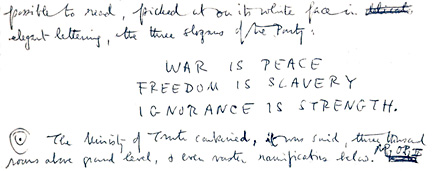 possible to read, picked out on its white face in
elegant lettering, the three slogans of the Party:
WAR IS PEACE
FREEDOM IS SLAVERY
IGNORANCE IS STRENGTH.
The Ministry of Truth contained, it was said, three thousand
rooms above ground level, & even vaster ramifications below.